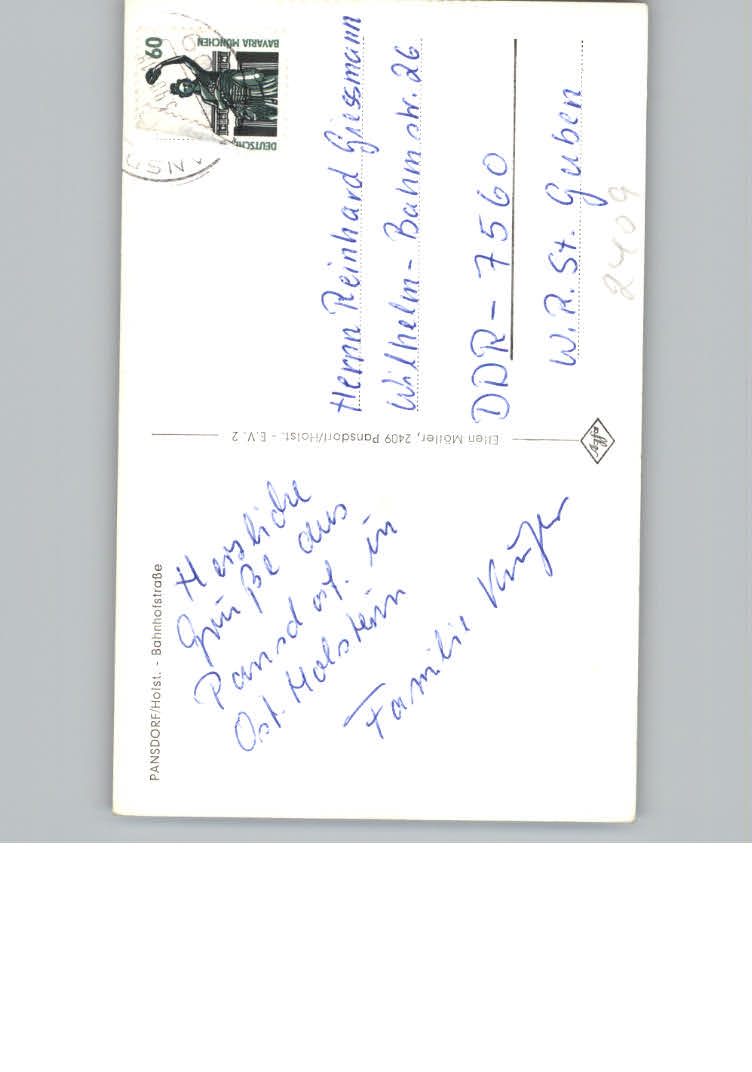 PANSDORF/Holst. - Bahnhofstraße
Herzliche
Grüße aus
Pansdorf. in
Ost. Holstein
Familie
Ellen Möller, 2409 Pansdorf/Holst. - E.V. 2
Agfa
60
BAVARIA MÜNCHEN
DEUTSCHE
Herrn Reinhard Giessmann
Wilhelm-Bahmstr. 26
DDR - 7560
W.P. St. Guben
2409